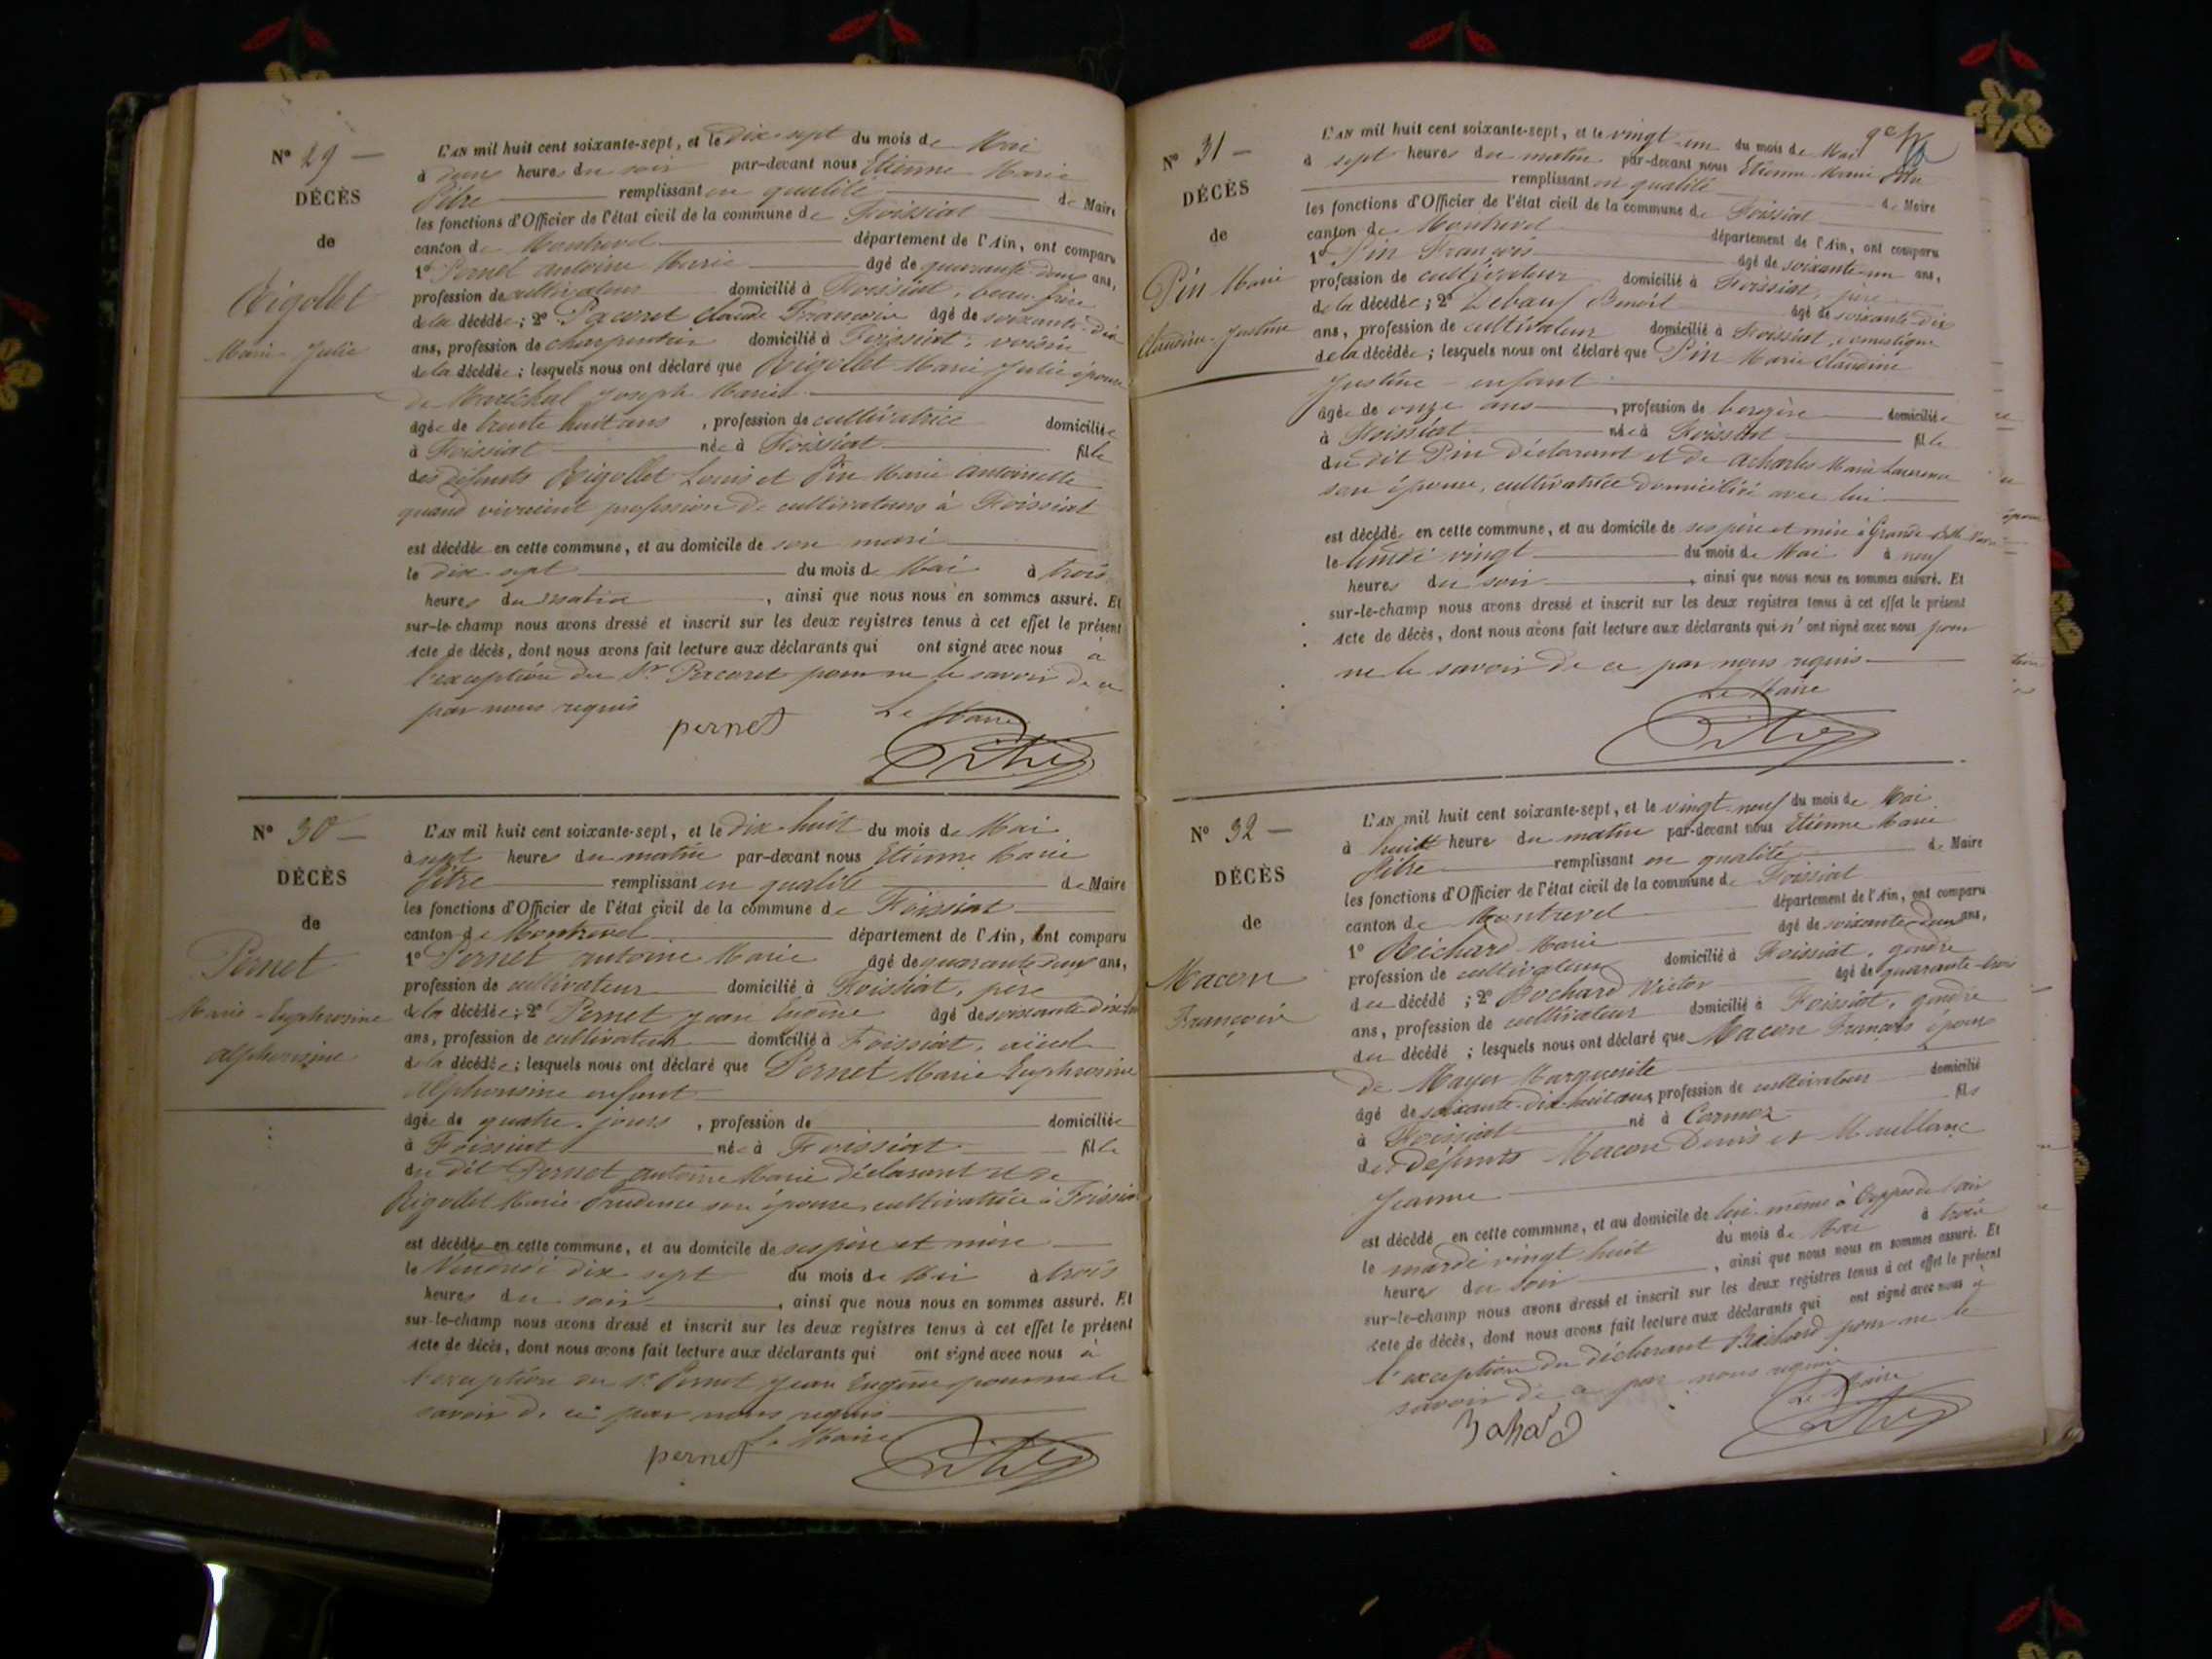 N° 29 —
DÉCÈS
de
Rigollet
Marie-Julie
L'AN mil huit cent soixante-sept, et le dix-sept du mois de Mai
à deux heures du soir par-devant nous Etienne Marie
Pitre remplissant en qualité de Maire
les fonctions d'Officier de l'état civil de la commune de Foissiat
canton de Montrevel département de l'Ain, ont comparu
1° Pernet antoine Marie âgé de quarante-deux ans,
profession de cultivateur domicilié à Foissiat, beau-frère
de la décédée; 2° Pacoret Claude François âgé de soixante-dix
ans, profession de charpentier domicilié à Foissiat, voisin
de la décédée; lesquels nous ont déclaré que Rigollet Marie Julie épouse
de Maréchal Joseph Marie
âgée de trente huit ans, profession de cultivatrice domiciliée
à Foissiat née à Foissiat fille
des défunts Rigollet Louis et Pin Marie antoinette
quand vivaient profession de cultivateurs à Foissiat
est décédée en cette commune, et au domicile de son mari
le dix sept du mois de Mai à trois
heures du matin, ainsi que nous nous en sommes assuré. Et
sur-le-champ nous avons dressé et inscrit sur les deux registres tenus à cet effet le présent
Acte de décès, dont nous avons fait lecture aux déclarants qui ont signé avec nous à
l'exception du Sr Pacoret pour ne le savoir de ce
par nous requis
Le Maire
pernet
Pitre
N° 30 —
DÉCÈS
de
Pernet
Marie-Euphrosine
alphonsine
L'AN mil huit cent soixante-sept, et le dix-huit du mois de Mai
à sept heures du matin par-devant nous Etienne Marie
Pitre remplissant en qualité de Maire
les fonctions d'Officier de l'état civil de la commune de Foissiat
canton de Montrevel département de l'Ain, ont comparu
1° Pernet antoine Marie âgé de quarante deux ans,
profession de cultivateur domicilié à Foissiat, père
de la décédée; 2° Pernet Jean Eugène âgé de soixante dix
ans, profession de cultivateur domicilié à Foissiat, aïeul
de la décédée; lesquels nous ont déclaré que Pernet Marie Euphrosine
alphonsine enfant
âgée de quatre jours, profession de domiciliée
à Foissiat née à Foissiat fille
du dit Pernet antoine Marie déclarant et de
Rigollet Marie Prudence son épouse, cultivatrice à Foissiat
est décédée en cette commune, et au domicile de ses père et mère
le Vendredi dix sept du mois de Mai à trois
heures du soir, ainsi que nous nous en sommes assuré. Et
sur-le-champ nous avons dressé et inscrit sur les deux registres tenus à cet effet le présent
Acte de décès, dont nous avons fait lecture aux déclarants qui ont signé avec nous à
l'exception du Sr Pernet Jean Eugène pour ne le
savoir de ce par nous requis
Le Maire
pernet
Pitre
N° 31 —
DÉCÈS
de
Pin Marie
Claudine-Justine
L'AN mil huit cent soixante-sept, et le vingt-un du mois de Mai
à sept heures du matin par-devant nous Etienne Marie Pitre
remplissant en qualité de Maire
les fonctions d'Officier de l'état civil de la commune de Foissiat
canton de Montrevel département de l'Ain, ont comparu
1° Pin François âgé de soixante-un ans,
profession de cultivateur domicilié à Foissiat, père
de la décédée; 2° Lebauf Benoit âgé de soixante-dix
ans, profession de cultivateur domicilié à Foissiat, domestique
de la décédée; lesquels nous ont déclaré que Pin Marie Claudine
Justine enfant
âgée de onze ans, profession de bergère domiciliée
à Foissiat née à Foissiat fille
du dit Pin déclarant et de Marie
son épouse, cultivatrice domiciliée avec lui
est décédée en cette commune, et au domicile de ses père et mère à Grande
le lundi vingt du mois de Mai à neuf
heures du soir, ainsi que nous nous en sommes assuré. Et
sur-le-champ nous avons dressé et inscrit sur les deux registres tenus à cet effet le présent
Acte de décès, dont nous avons fait lecture aux déclarants qui n'ont signé avec nous pour
ne le savoir de ce par nous requis
Le Maire
Pitre
N° 32 —
DÉCÈS
de
Macon
François
L'AN mil huit cent soixante-sept, et le vingt-neuf du mois de Mai
à huit heure du matin par-devant nous Etienne Marie
Pitre remplissant en qualité de Maire
les fonctions d'Officier de l'état civil de la commune de Foissiat
canton de Montrevel département de l'Ain, ont comparu
1° Réchard Marie âgé de soixante-deux ans,
profession de cultivateur domicilié à Foissiat, gendre
du décédé; 2° Bochard Victor âgé de quarante-trois
ans, profession de cultivateur domicilié à Foissiat, gendre
du décédé; lesquels nous ont déclaré que Macon François époux
de Mayer Marguerite
âgé de soixante-dix-huit ans, profession de cultivateur domicilié
à Foissiat né à Cormoz fils
des défunts Macon Denis et Maublanc
Jeanne
est décédé en cette commune, et au domicile de lui-même à
le mardi vingt huit du mois de Mai à trois
heures du soir, ainsi que nous nous en sommes assuré. Et
sur-le-champ nous avons dressé et inscrit sur les deux registres tenus à cet effet le présent
Acte de décès, dont nous avons fait lecture aux déclarants qui ont signé avec nous à
l'exception du déclarant Réchard pour ne le
savoir de ce par nous requis
Le Maire
Pitre